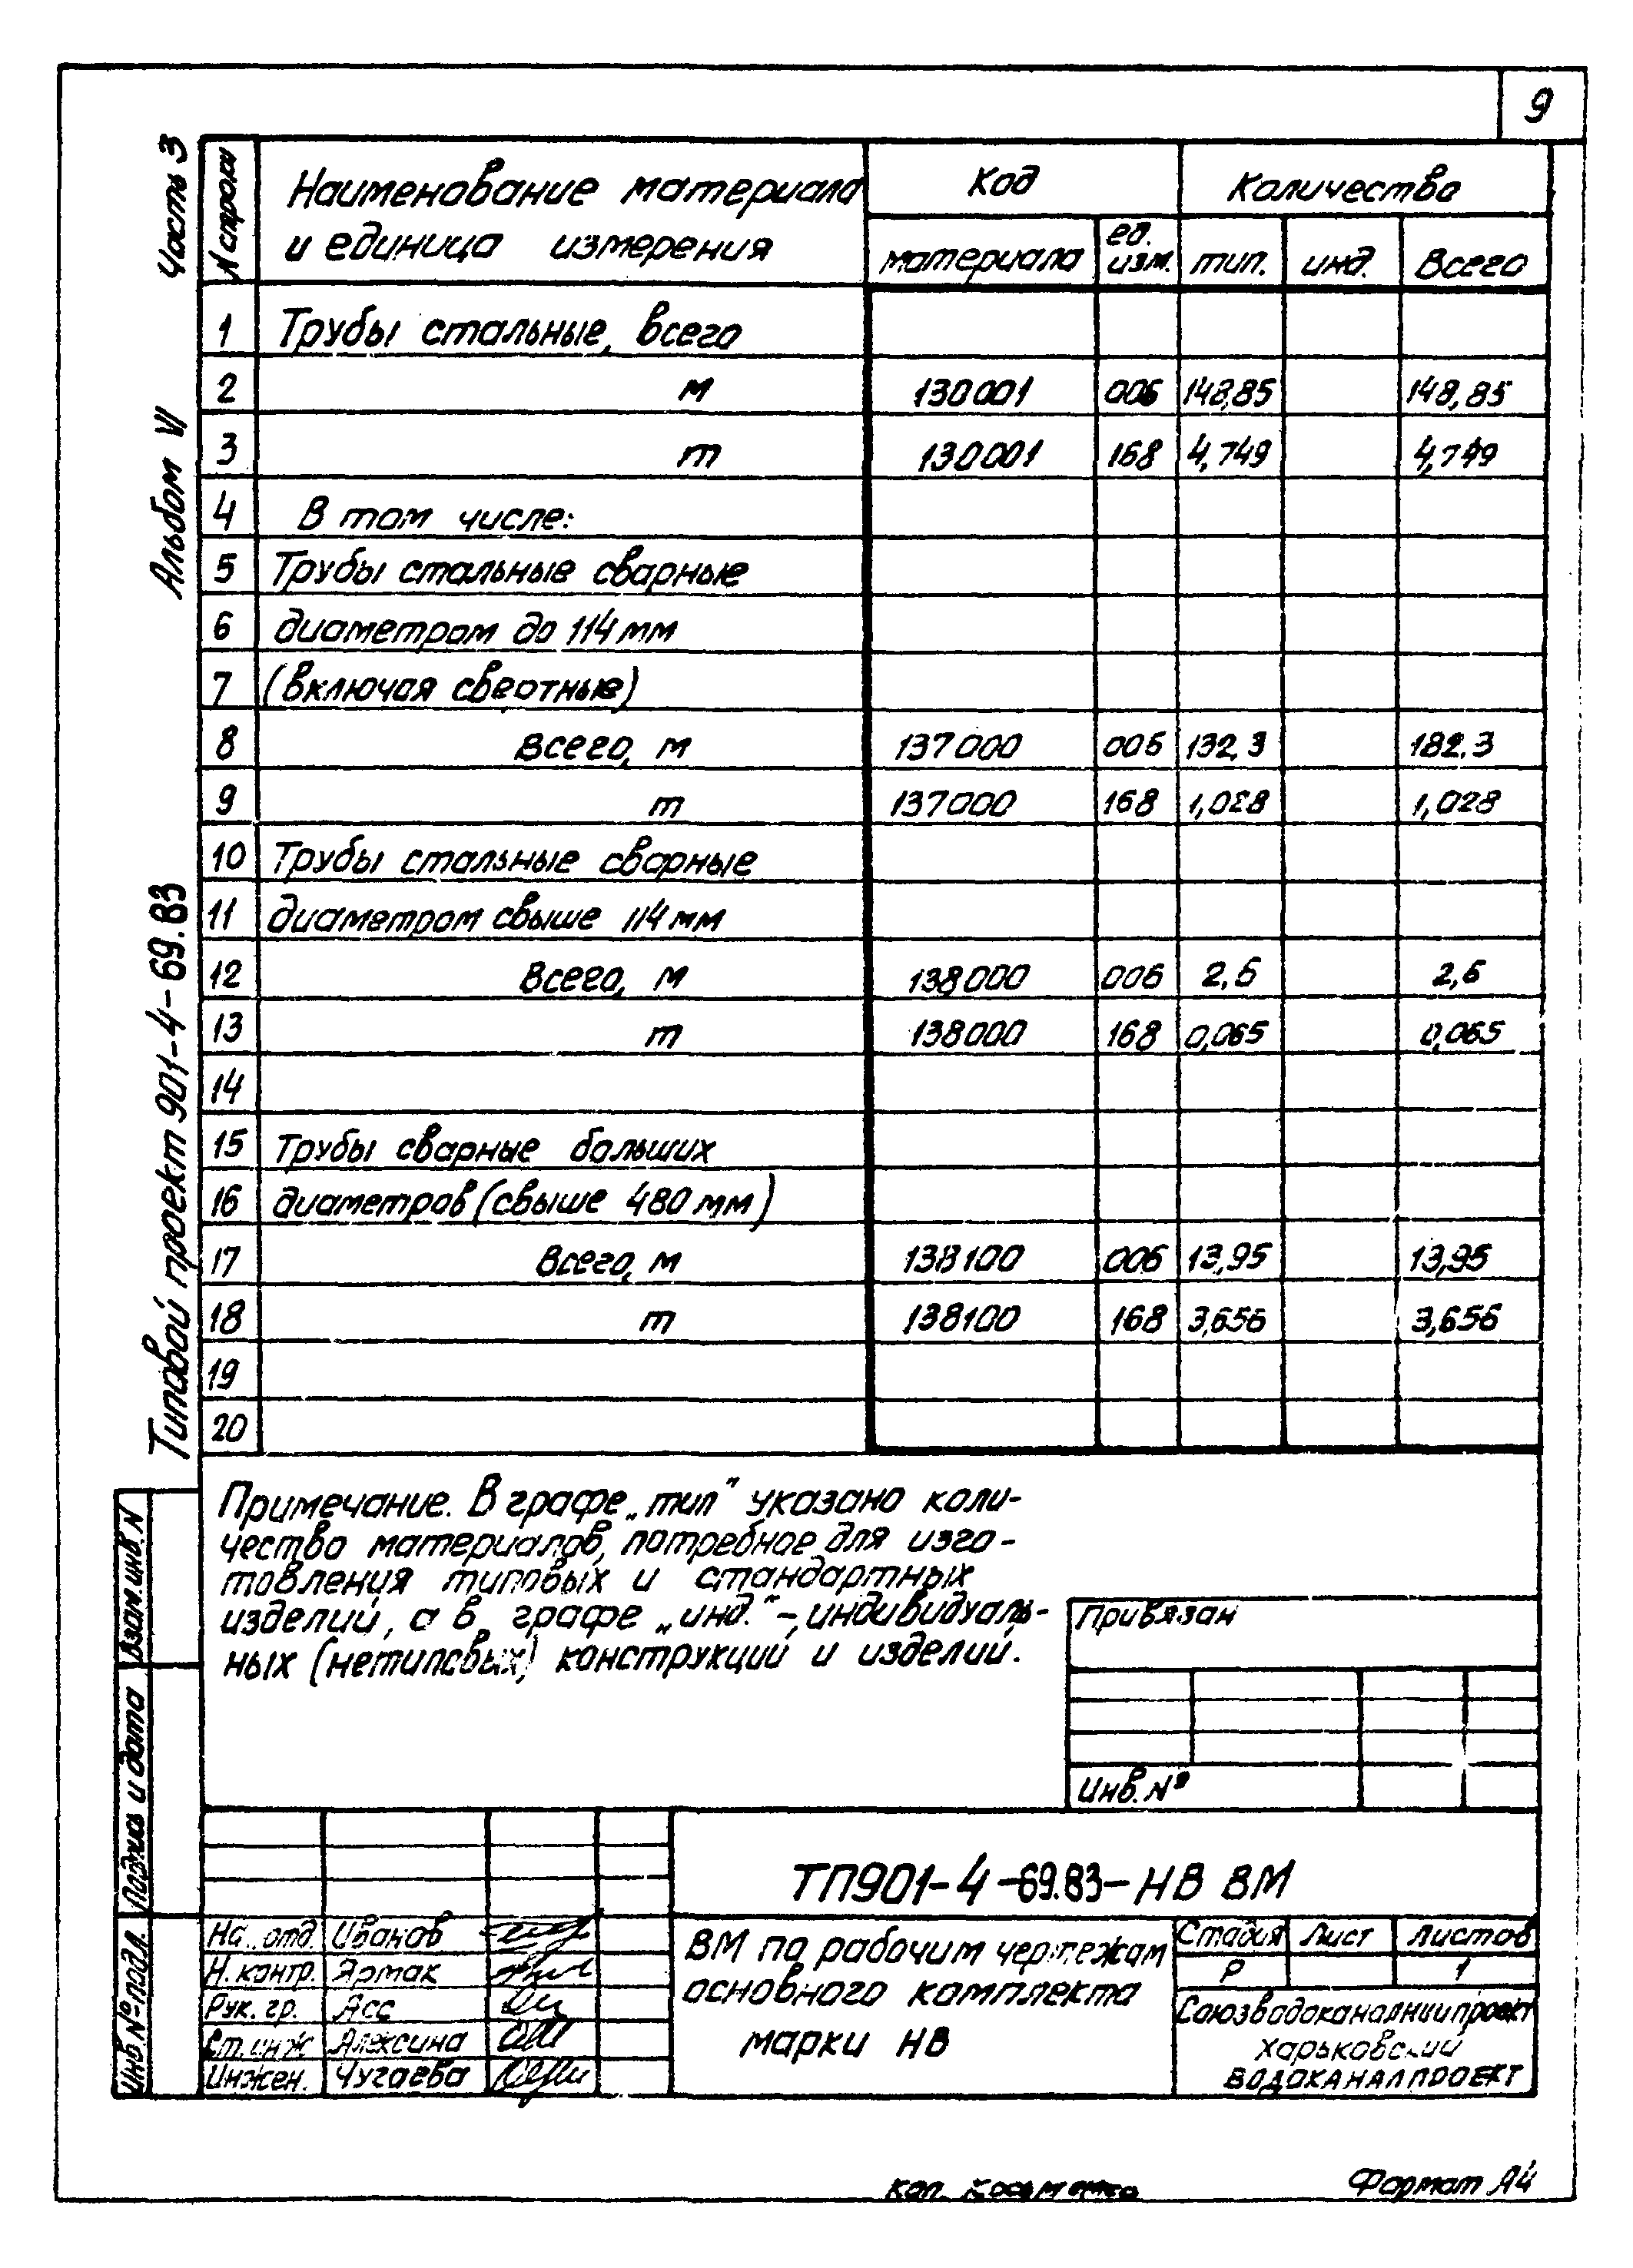 9
Часть 3
Альбом VI
Типовой проект 901-4-69.83
N строки
Наименование материала
и единица измерения
Код
Количество
материала
ед.
изм.
тип.
инд.
Всего
1 Трубы стальные, всего
2 м 130001 006 148,85 148,85
3 т 130001 168 4,749 4,749
4 В том числе:
5 Трубы стальные сварные
6 диаметром до 114 мм
7 (включая свертные)
8 всего, м 137000 006 132.3 132.3
9 т 137000 168 1,028 1,028
10 Трубы стальные сварные
11 диаметром свыше 114 мм
12 Всего, м 138000 006 2,6 2,6
13 т 138000 168 0,065 0,065
14
15 Трубы сварные больших
16 диаметров (свыше 480 мм)
17 Всего, м 138100 006 13,95 13,95
18 т 138100 168 3,656 3,656
19
20
Примечание. В графе „тип" указано коли-
чество материалов, потребное для изго-
товления типовых и стандартных
изделий, а в графе „инд." - индивидуаль-
ных (нетиповых) конструкций и изделий.
Привязан
Инв. №
Взам. инв. N
Подпись и дата
Инв. № подл.
ТП901-4-69.83-НВ ВМ
На. отд. Иванов
Н. контр. Ярмак
Рук. гр. Ясс
Ст. инж Алексина
Инжен. Чугаева
ВМ по рабочим чертежам
основного комплекта
марки НВ
Стадия Лист Листов
Р 1
Союзводоканалниипроект
Харьковский
ВОДОКАНАЛПРОЕКТ
Коп.
Формат А4